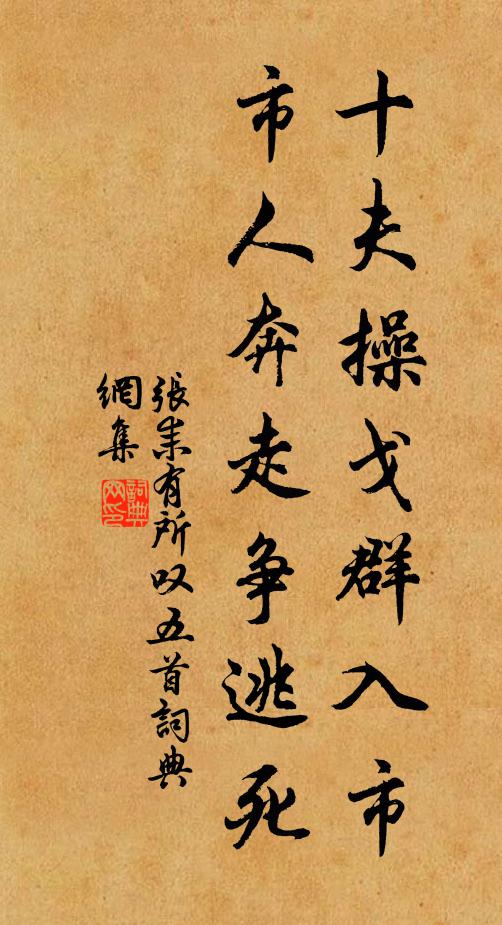 十夫操戈群入市
市人奔走争逃死
張耒有所叹五首詞典
網集
詞典
网印